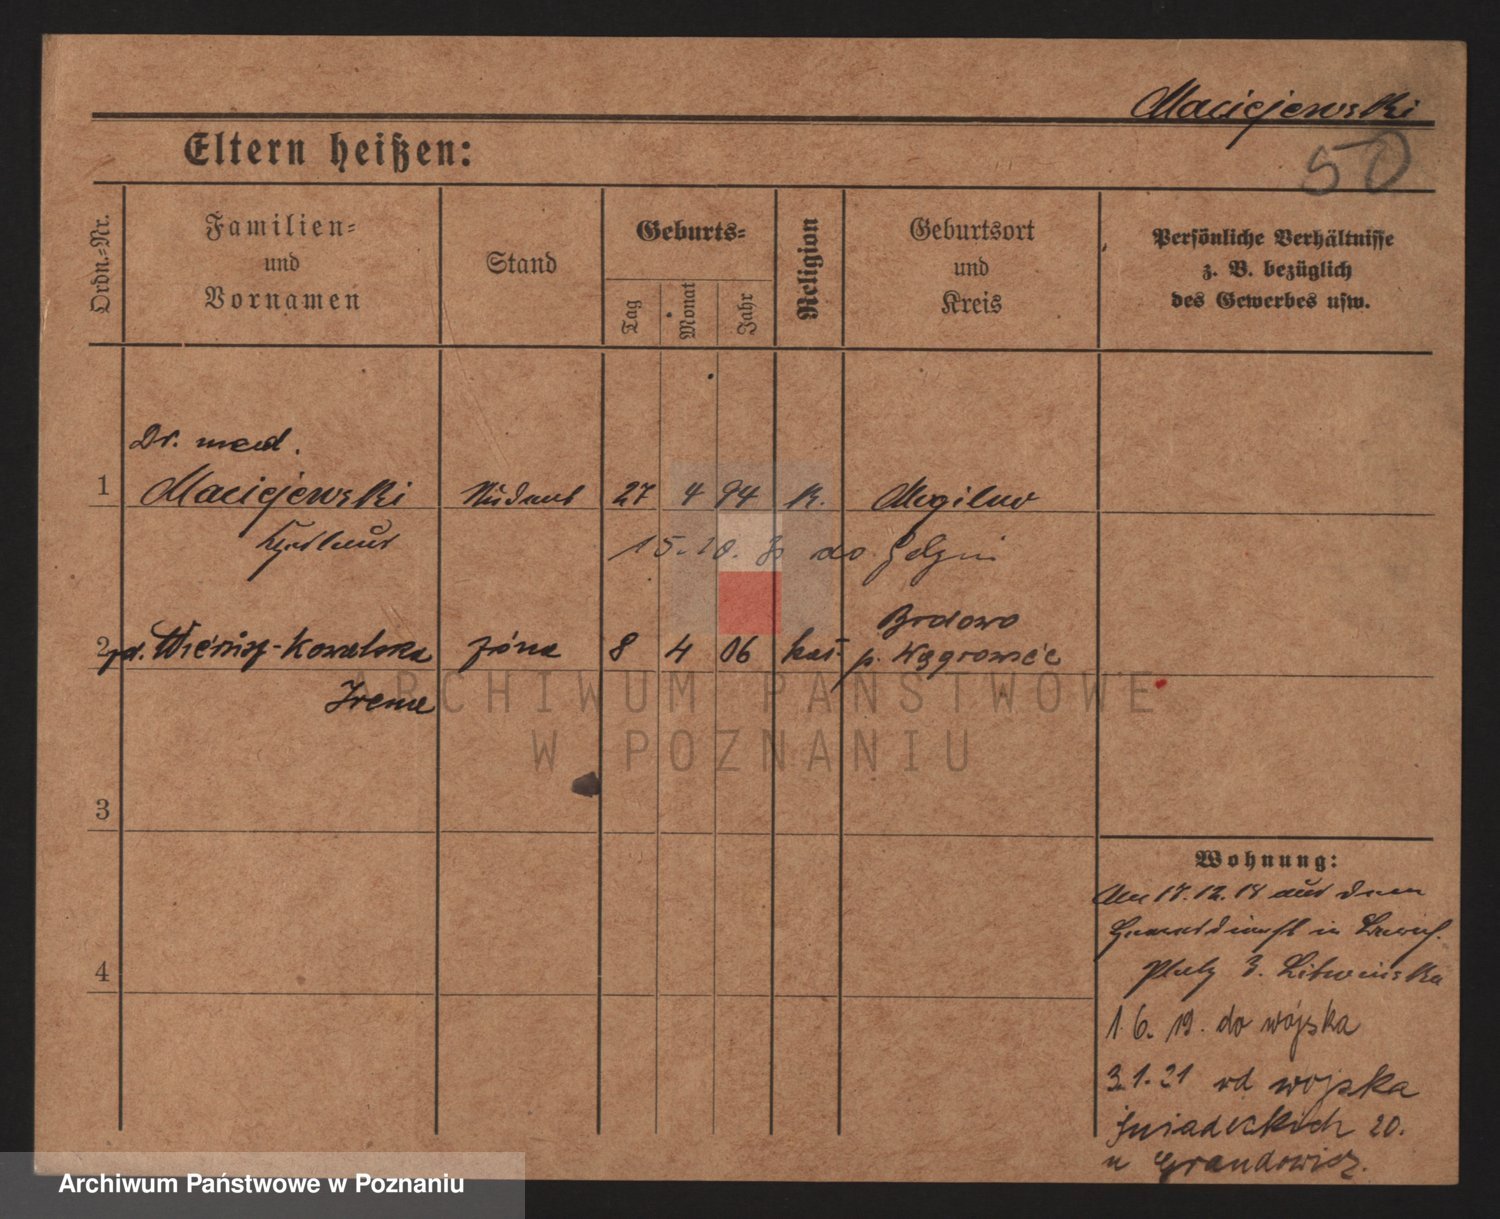 Maciejewski
50
Eltern heißen:
Ordn.-Nr.
Familien-
und
Vornamen
Stand
Geburts-
Tag
Monat
Jahr
Religion
Geburtsort
und
Kreis
Persönliche Verhältnisse
z. B. bezüglich
des Gewerbes usw.
Dr. med.
1 Maciejewski Student 27 4 94 K. Mogilno
15.10. do
2 Kowalska żona 8 4 06 kat. Brdowo
p. Wągrowiec
Irena
ARCHIWUM PAŃSTWOWE
W POZNANIU
3
4
Wohnung:
17.12.18 aus dem
in
Platz 3. Litwinska
1.6.19. do wojska
3.1.21 od wojska
Śniadeckich 20.
u Grandowicz.
Archiwum Państwowe w Poznaniu